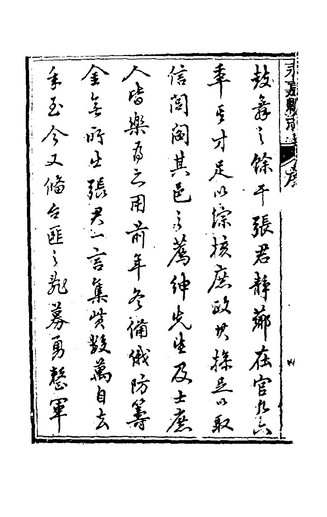 永嘉縣志 序
鼓舞之餘干張君靜薌在官九六
年其才足以綜核庶政其操足以取
信閭閻其邑之薦紳先生及士庶
人皆樂為之用前年冬備俄防籌
金無所出張君一言集貲數萬自去
年至今又修台匪之亂募勇整軍